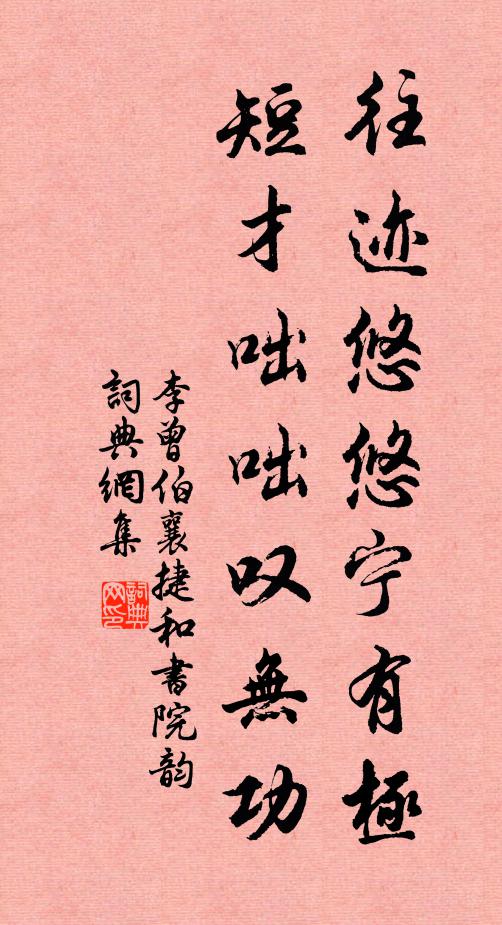 往迹悠悠宁有極
短才咄咄叹無功
李曾伯襄捷和書院韵
詞典網集
詞典网印